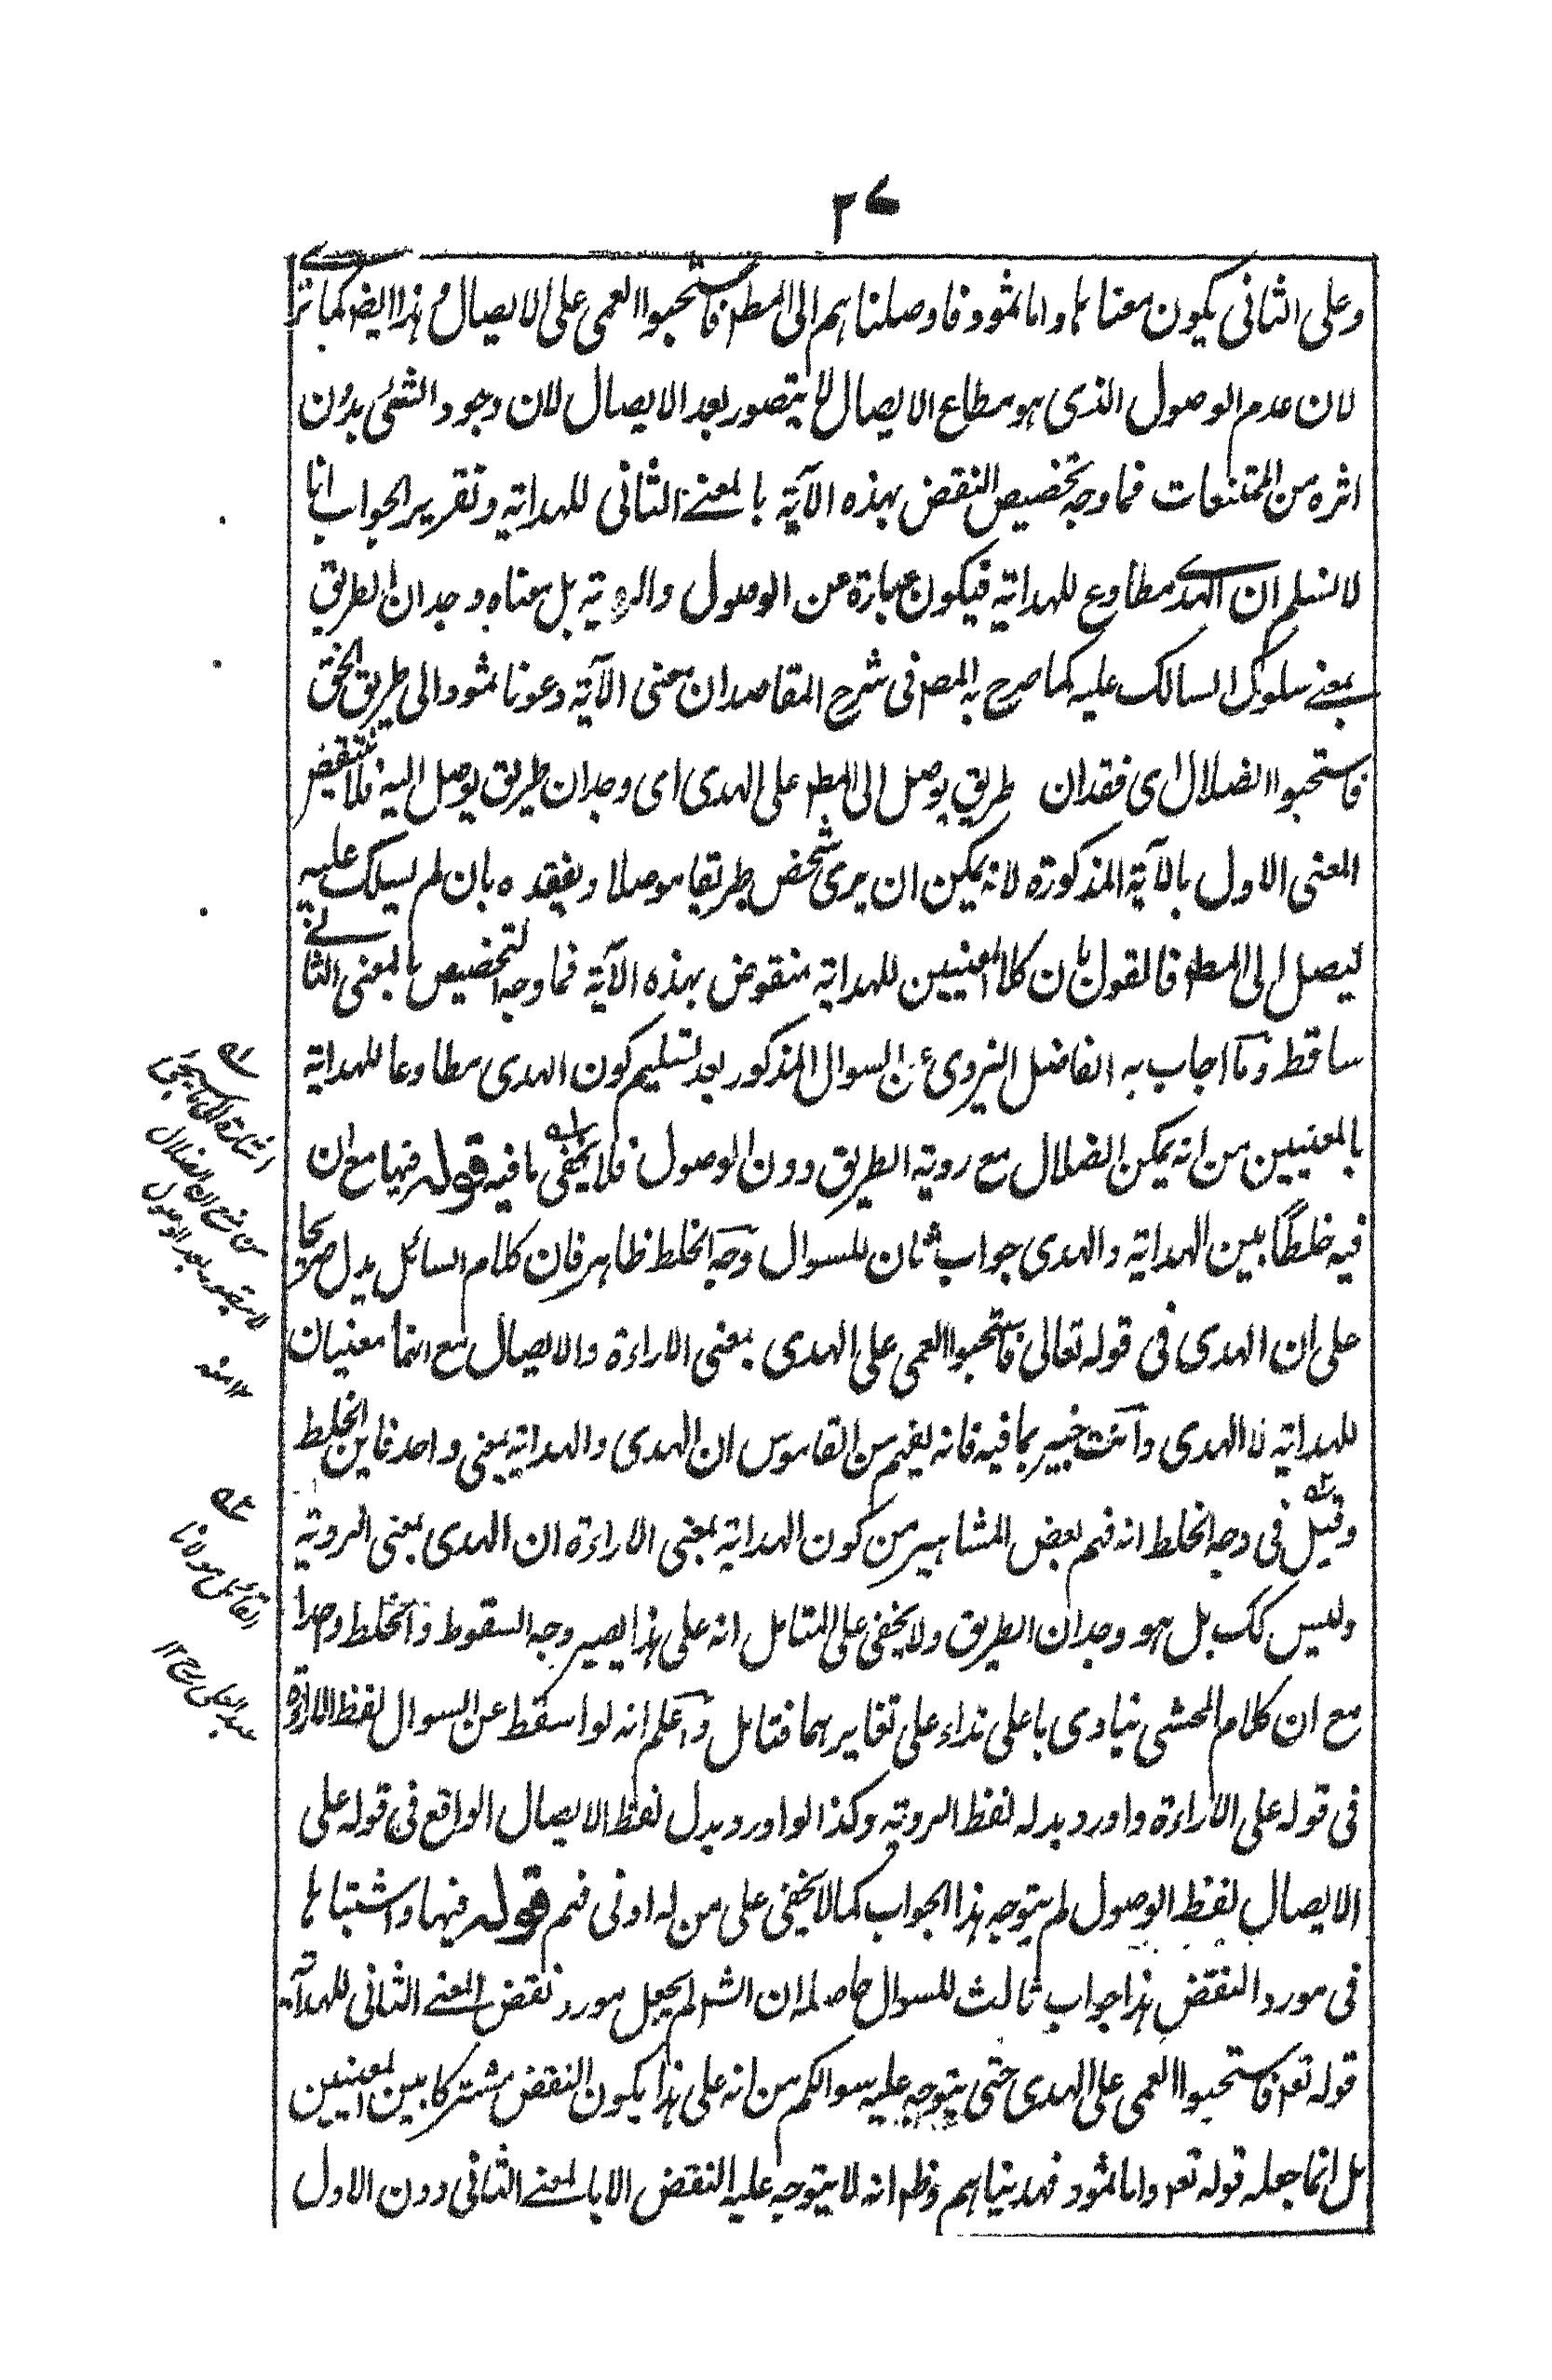 ٢٧
وعلى الثانى يكون معناها واما ثمود فاوصلناهم الى المط فاستحبوا العمى على الايصال وهذا ايضا كما ترى
لان عدم الوصول الذى هو مطاع الايصال لا يتصور بعد الايصال لان وجود الشئ بدون
اثره من الممتنعات فما وجه تخصيص النقض بهذه الآية بالمعنى الثانى للهداية وتقرير الجواب انا
لا نسلم ان الهدى مطاوع للهداية فيكون عبارة عن الوصول والروية بل معناه وجدان الطريق
بمعنى سلوك السالك عليه كما صرح به المص فى شرح المقاصد ان معنى الآية دعونا ثمود الى طريق الحق
فاستحبوا الضلال اى فقدان طريق يوصل الى المط على الهدى اى وجدان طريق يوصل اليه فلا ينتقض
المعنى الاول بالآية المذكورة لانه يمكن ان يرى شخص طريقا موصلا ويفقده بان لم يسلك عليه
ليصل الى المط فالقول بان كلا المعنيين للهداية منقوض بهذه الآية فما وجه التخصيص بالمعنى الثانى
ساقط وما اجاب به الفاضل اليزدى عن السوال المذكور بعد تسليم كون الهدى مطاوعا للهداية
بالمعنيين من انه يمكن الضلال مع روية الطريق دون الوصول فلا يخفى ما فيه قوله فيها مع ان
فيه خلطا بين الهداية والهدى جواب ثان للسوال وجه الخلط ظاهر فان كلام السائل يدل صريحا
على ان الهدى فى قوله تعالى فاستحبوا العمى على الهدى بمعنى الاراءة والايصال مع انهما معنيان
للهداية لا الهدى وانت خبير بما فيه فانه يفهم من القاموس ان الهدى والهداية بمعنى واحد فاين الخلط
وقيل فى وجه الخلط انه فهم بعض المشاهير من كون الهداية بمعنى الاراءة ان الهدى بمعنى الروية
وليس كك بل هو وجدان الطريق ولا يخفى على المتامل انه على هذا يصير وجه السقوط والخلط واحدا
مع ان كلام المحشى ينادى باعلى نداء على تغايرهما فتامل واعلم انه لو اسقط عن السوال لفظ الاراءة
فى قوله على الاراءة واورد بدله لفظ الروية وكذا لو اورد بدل لفظ الايصال الواقع فى قوله على
الايصال لفظ الوصول لم يتوجه هذا الجواب كما لا يخفى على من له ادنى فهم قوله فيها واشتباها
فى مورد النقض هذا جواب ثالث للسوال حاصله ان الش لم يجعل مورد نقض المعنى الثانى للهداية
قوله تع فاستحبوا العمى على الهدى حتى يتوجه عليه سوالكم من انه على هذا يكون النقض مشتركا بين المعنيين
بل انما جعله قوله تع واما ثمود فهديناهم وظ انه لا يتوجه عليه النقض الا بالمعنى الثانى دون الاول
له
اشارة الى ما سيجئ
من منع ان الضلال
لا يتصور بعد الوصول
١٢ منه
٢ه
القائل مولانا
عبد العلى رح ١٢